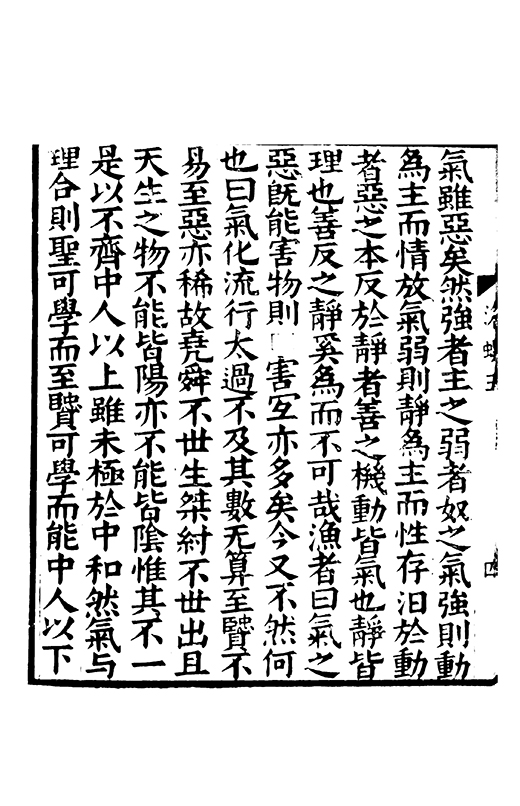 氣雖惡矣然強者主之弱者奴之氣強則動
為主而情放氣弱則靜為主而性存汩於動
者惡之本反於靜者善之機動皆氣也靜皆
理也善反之靜奚為而不可哉漁者曰氣之
惡旣能害物則 害宐亦多矣今又不然何
也曰氣化流行太過不及其數无算至賢不
易至惡亦稀故堯舜不世生桀紂不世出且
天生之物不能皆陽亦不能皆陰惟其不一
是以不齊中人以上雖未極於中和然氣与
理合則聖可學而至賢可學而能中人以下
五
四